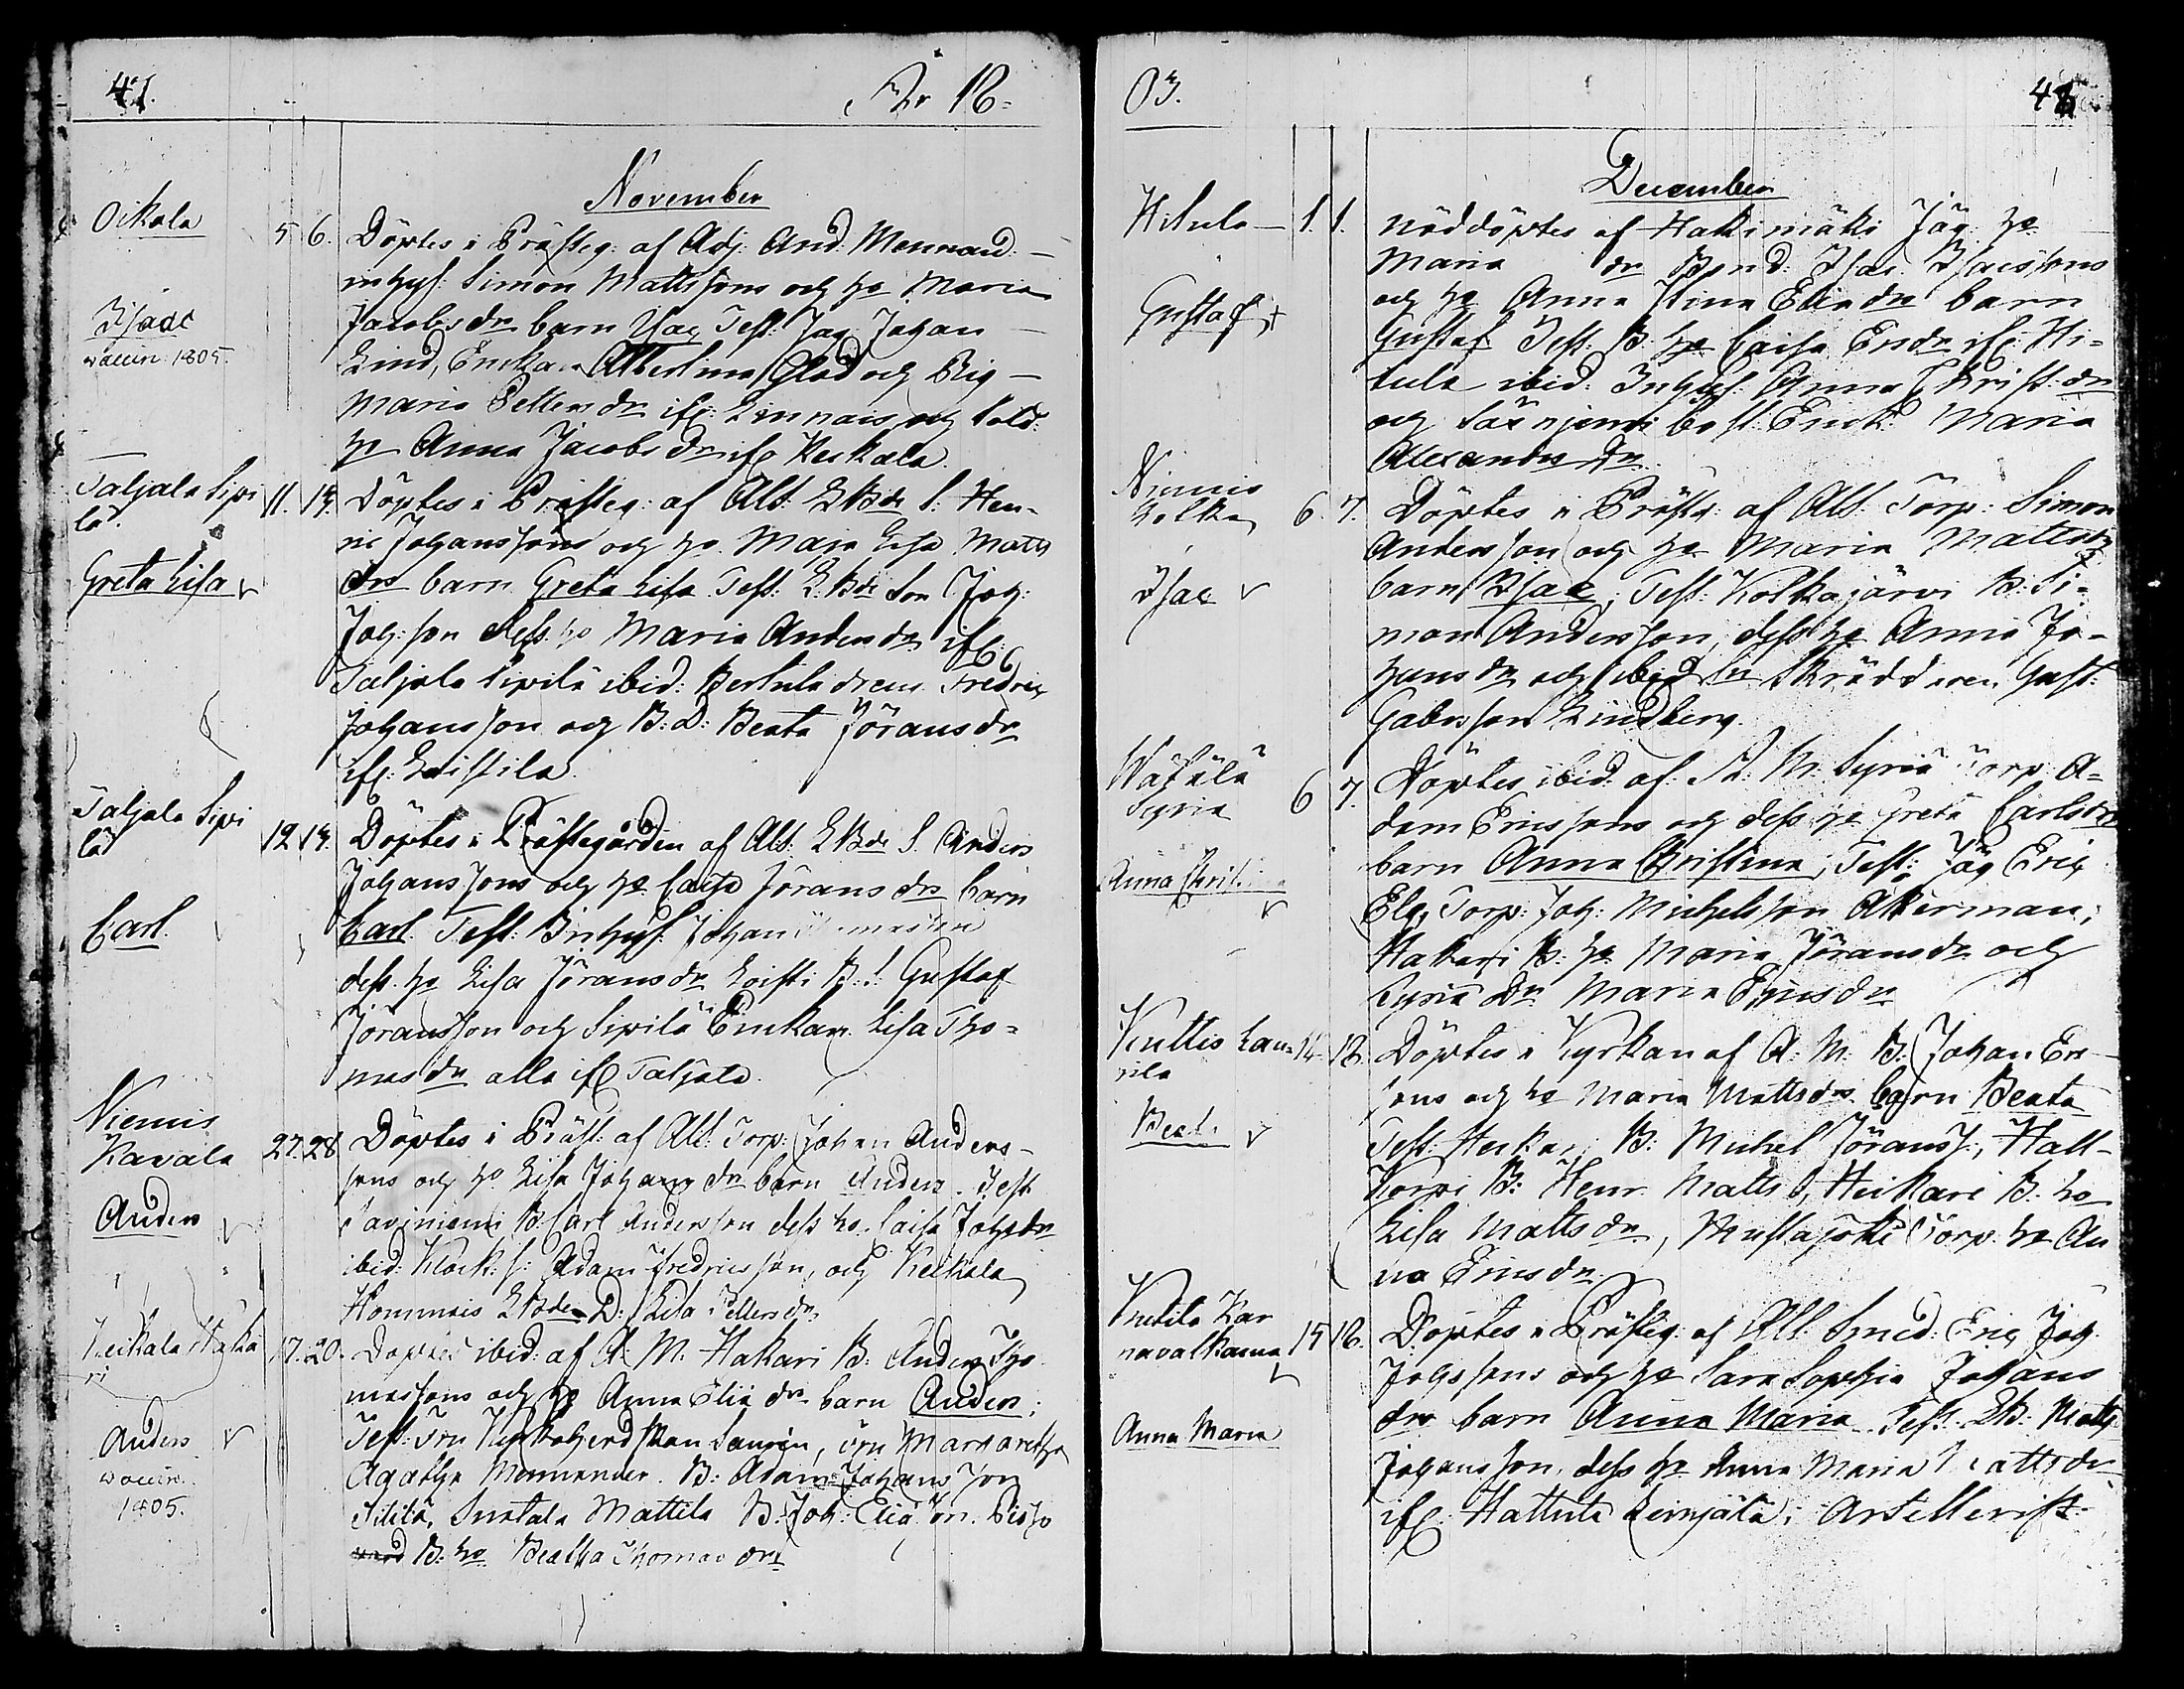 47.
År 18
November
Oikola
5 6. Döptes i Prästeg: af Adj: And: Mennand:
inhys: Simon Mattssons och ho Maria
Isaac
Jacobs dr barn Isac Test: Jäg Johan
waccin: 1805.
Lind, Enckan Albertina Glad och Pig
Maria Petters dr ifr: Linnais och Sold:
ho Anna Jacobs dr ifr Keikala
Taljala Sipi
lä
11. 14. Döptes i Prästeg: af Alb: LBde S: Hen-
ric Johanssons och ho. Maja Lisa Matts
Greta Lisa
dr barn Greta Lisa Test: L:Bde Son Joh:
Joh:son dess ho Maria Anders dr ifr:
Taljala Sipilä ibid: Bertula dreng Fredric
Johansson och B:D: Beata Jörans dr
ifr: Loistila
Taljala Sipi
lä
12 14. Döptes i Prästegården af Alb: LBde S. Anders
Johanssons och ho Caisa Jörans dr barn
Carl
Carl Test: Inhys: Johan
dess ho Lisa Jörans dr Loisti B:S: Gustaf
Jöransson och Sipilä Enckan Lisa Tho-
mas dr alla ifr Taljala.
Niemis
Kavala
27. 28 Döptes i Präst: af Alb: Torp: Johan Anders-
sons och ho Lisa Johans dr barn Anders. Test
Anders
Saviniemi B: Carl Andersson dess ho Caisa Johs dr
ibid: Klock: S: Adam Fredricsson, och Keikala
Hommais LBde D: Lisa Petters dr
Keikala Haka
ri
17. 20. Döptes ibid: af A: M. Hakari B: Anders Tho
massons och ho Anna Elia dr barn Anders;
Anders
Test: Kyrkoherdskan Margaretha
waccin:
1805.
Agatha Mennander. B: Adam Johansson
Sillilä, Snatala Mattila B: Joh: Elia
B: ho Beatha Thomas dr
03.
48
December
Hilula 1. 1. Nöddöptes af Hakimäki Jäg: ho
Maria dr Bond: Isac Isacssons
Gustaf +
och ho Anna Stina Elia dr barn
Gustaf Test: B: ho Caisa Ers dr ifr: Hi-
lula ibid: Inhys: Anna Christ: dr
och Säxnjemi bost: Enck: Maria
Alexanders dr
Niemis
Kolka
6. 7. Döptes i Präst: af Alb: Torp: Simon
Andersson och ho Maria Matts dr
Isac
barn Isac, Test: Kolkajärvi B: Si-
mon Andersson, dess ho Anna Jo-
hans dr och ibid Skräddaren Gust:
Gabrsson Lindberg.
Wätälä
Syria
6 7. Döptes ibid: af A: M: Syriä Torp: A-
dam Ericssons och dess ho Greta Carls dr
Anna Christina
barn Anna Christina, Test: Jäg Eric
Elg, Torp: Joh: Michelsson Åkerman,
Hakari B: ho Maria Jörans dr och
Syriä Dr Maria Erics dr
Kuttis Lau-
rila
14. 18. Döptes i Kyrkan af A: M: B: Johan Ers-
sons och ho Maria Matts dr barn Beata
Beata
Test: Heikari B: Michel Jöranss:, Hall-
korpi B: Henr: Matts S, Heikari B: ho
Lisa Matts dr, Mustajoki Torp: ho An
na Erics dr
Knetila Kar
navalkama
15 18. Döptes i Prästeg: af Alb: Smed: Eric Joh:
Johssons och ho Sara Sophia Johans
Anna Maria
dr barn Anna Maria. Test: LB: Matts
Johansson, dess ho Anna Maria Matts dr
ifr: Hattula Leinjälä; Artillerist